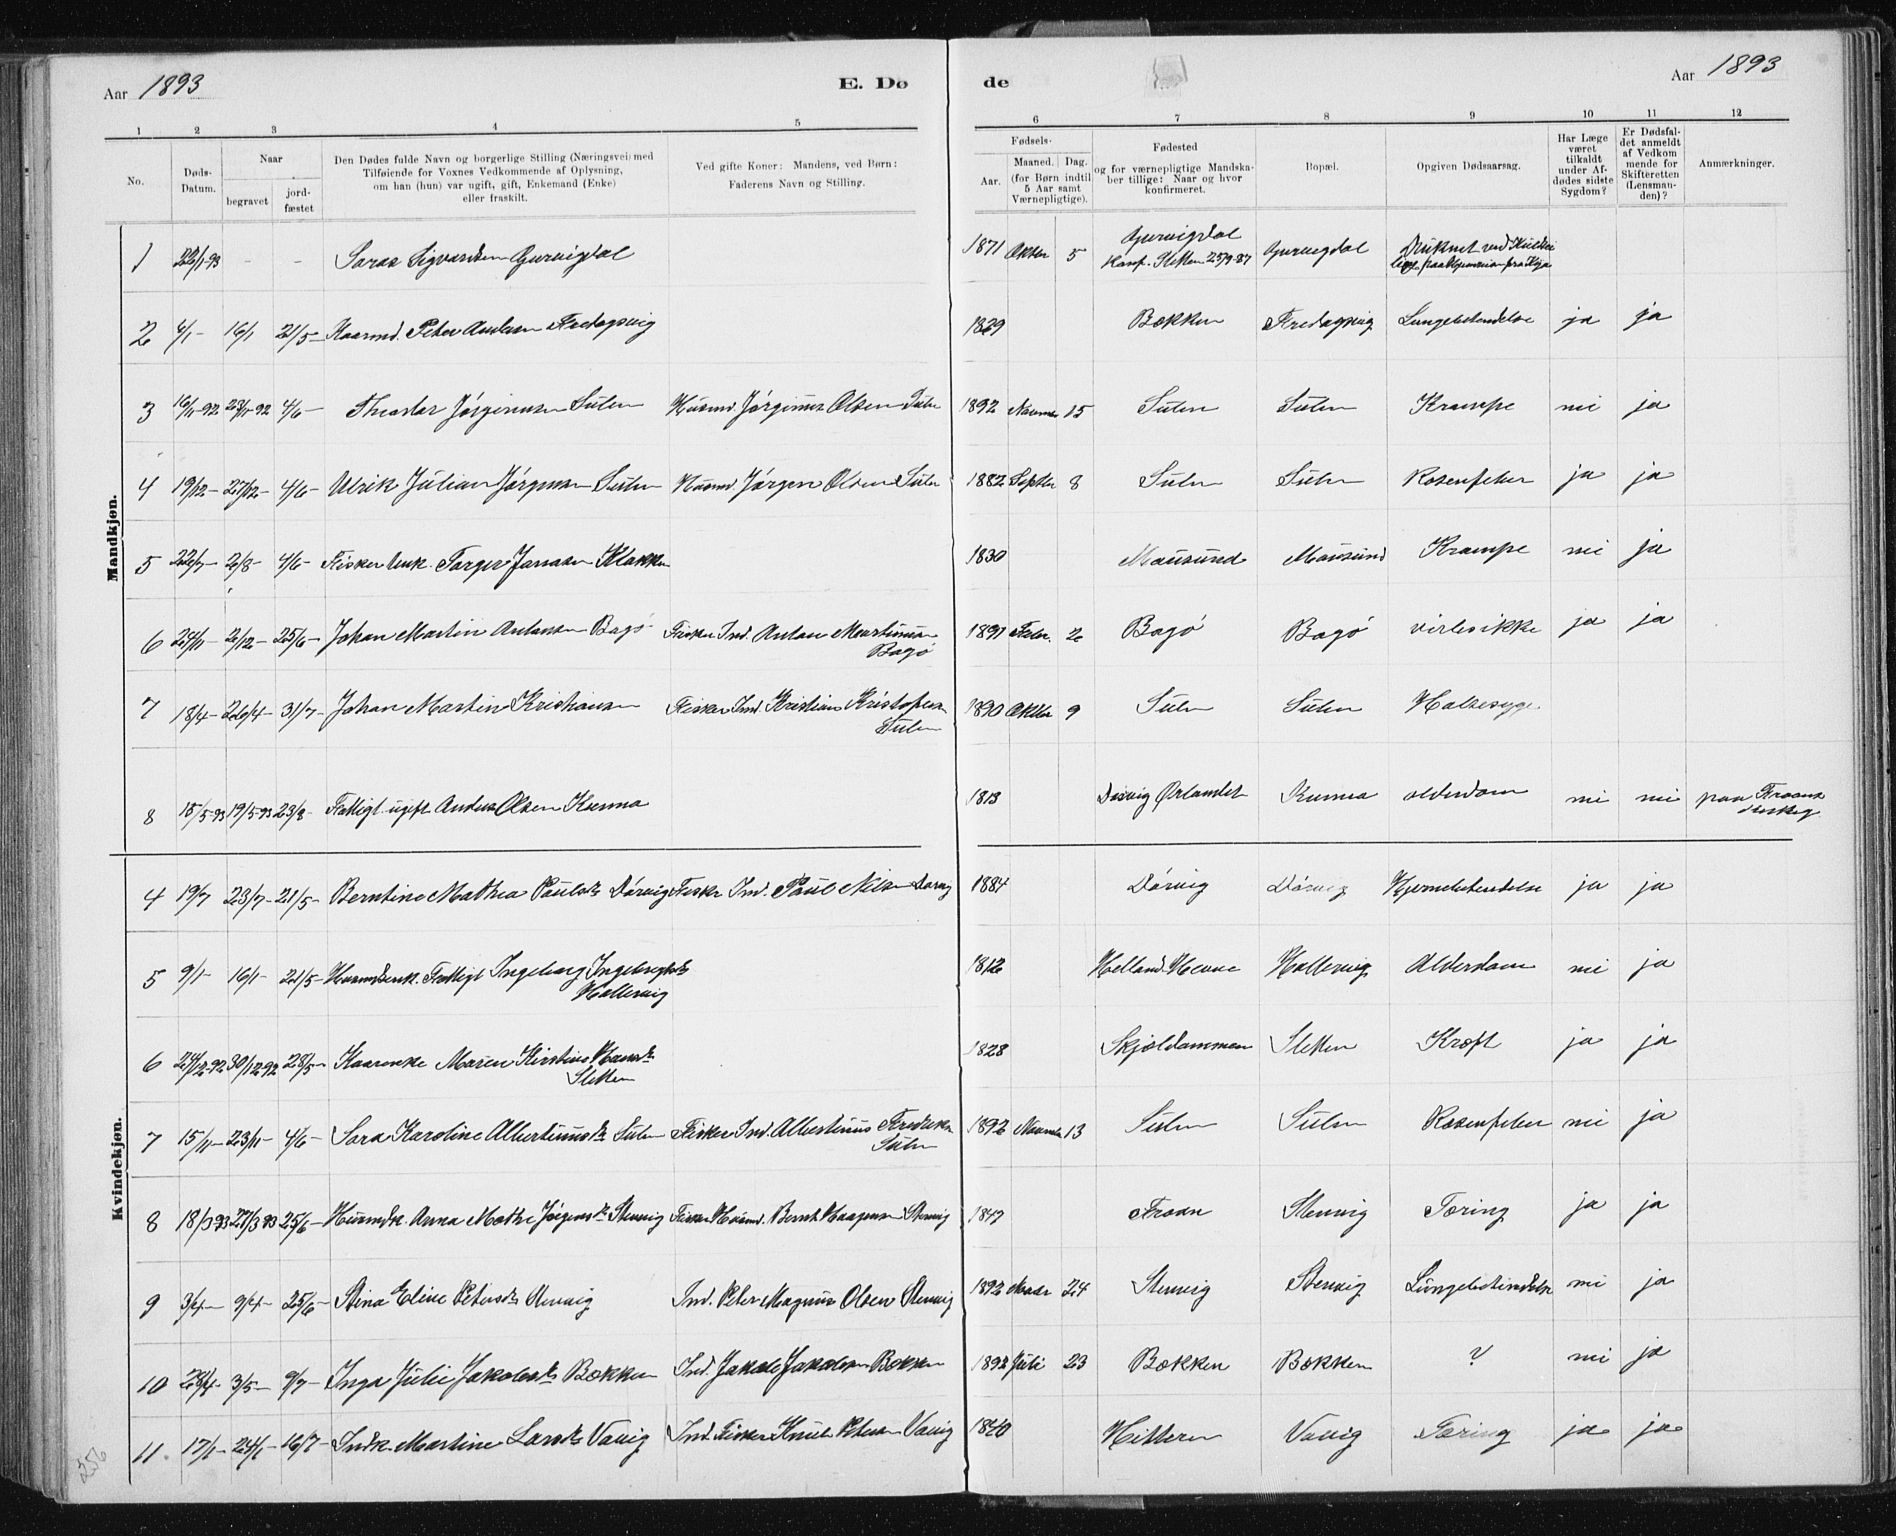 Aar 1893
E. Dø
de
Aar 1893
1 2 3 4 5
6 7 8 9 10 11 12
No.
Døds-
Datum.
Naar
begravet
jord-
fæstet
Den Dødes fulde Navn og borgerlige Stilling (Næringsvei) med
Tilføiende for Voxnes Vedkommende af Oplysning,
om han (hun) var ugift, gift, Enkemand (Enke)
eller fraskilt.
Ved gifte Koner: Mandens, ved Børn:
Faderens Navn og Stilling.
Fødsels-
Aar.
Maaned. Dag.
(for Børn indtil
5 Aar samt
Værnepligtige).
Fødested
og for værnepligtige Mandska-
ber tillige: Naar og hvor
konfirmeret.
Bopæl.
Opgiven Dødsaarsag.
Har Læge
været
tilkaldt
under Af-
dødes sidste
Sygdom?
Er Dødsfal-
det anmeldt
af Vedkom
mende for
Skifteretten
(Lensman-
den)?
Anmærkninger.
Mandkjøn.
1 22/1-93 - - Sigvardsen Gurvigdal 1871 Oktbr 5 Gurvigdal Gurvigdal Druknet ved
Konf. Sletten 25/9-87
2 4/1- 16/1 21/5- Kaarmd. Peter Andersen Fredagsvig 1829 Bekken Fredagsvig Lungebetendelse ja ja
3 16/11-92 23/11-92 4/6- Theodor Jørginusen Sulen Husmd. Jørginus Olsen Sulen 1892 Novmbr 15 Sulen Sulen Krampe nei ja
4 19/12- 27/12- 4/6- Ulrik Julian Jørgensen Sulen Husmd Jørgen Olsen Sulen 1882 Septbr 8 Sulen Sulen Rosenfeber ja ja
5 22/7- 2/8- 4/6- Fisker Enk. Torger Jonasen Klakken 1830 Mausund Mausund Krampe nei ja
6 24/11- 2/12- 25/6- Johan Martin Antonsen Bogø Fisker Ind. Anton Martinusen 1891 Febr. 2 Bogø Bogø vides ikke ja ja
Bogø
7 18/4- 26/4- 31/7- Johan Martin Kristiansen Fisker Ind. Kristian Kristofersen 1890 Oktbr 9 Sulen Sulen Halsesyge
Sulen
8 15/5-93 19/5-93 23/8- Fattigl. ugift Anders Olsen Kunna 1813 Ørlandet Kunna alderdom nei nei paa Froans
Kvindekjøn.
4 19/7 23/7- 21/5- Berntine Mathea Paulsdr Dørvig Fisker Ind. Paul Nilsen Dørvig 1884 Dørvig Dørvig Hjernebetendelse ja ja
5 9/1- 16/1- 21/5- Husmdsenk. Fattigl Ingeborg Ingebregtsdr 1812 Helland Hevne Hallervig Alderdom nei ja
Hallervig
6 24/12-92 30/12-92 28/5- Kaarenke Maren Kirstine Hansdr 1828 Skjøldammen Sletten Kræft ja ja
Sletten
7 15/11- 23/11- 4/6- Sara Karoline Albertinusdr Sulen Fisker Ind. Albertinus Fredriksen 1892 Novmbr 13 Sulen Sulen Rosenfeber nei ja
Sulen
8 18/3 93 27/3 93 25/6- Husmdk. Anna Mathe Jørgensdr Stenvig Fisker Husmd. Bernt Haagensen Stenvig 1847 Froan Stenvig Tæring ja ja
9 3/4- 9/4- 25/6- Stina Eline Petersdr Stenvig Ind. Peter Magnus Olsen Stenvig 1892 Mai 24 Stenvig Stenvig Lungebetendelse nei ja
10 28/4- 3/5- 9/7- Inga Julie Jakobsdr Bekken Ind. Jakob Jakobsen Bekken 1892 Juli 23 Bekken Bekken ? nei ja
11. 17/1- 24/1- 16/7- Indk. Martine Larsdr Vavig Ind. Fisker Knut Petersen Vavig 1840 Hitteren Vavig Tæring ja ja
256